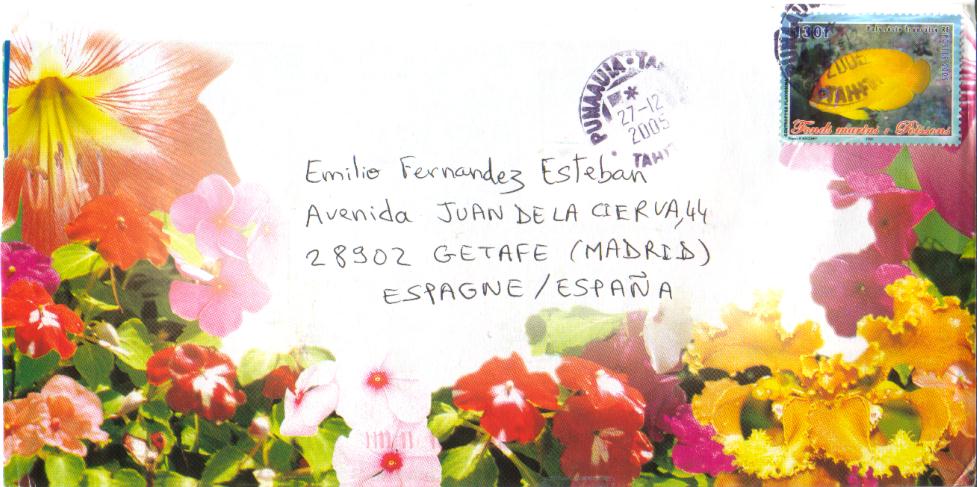 130f
Polynésie française
Fonds marins : Poissons
PUNAAUIA · TAH
27-12
2005
TAHITI
2005
TAHITI
Emilio Fernandez Esteban
Avenida JUAN DE LA CIERVA, 44
28902 GETAFE (MADRID)
ESPAGNE / ESPAÑA